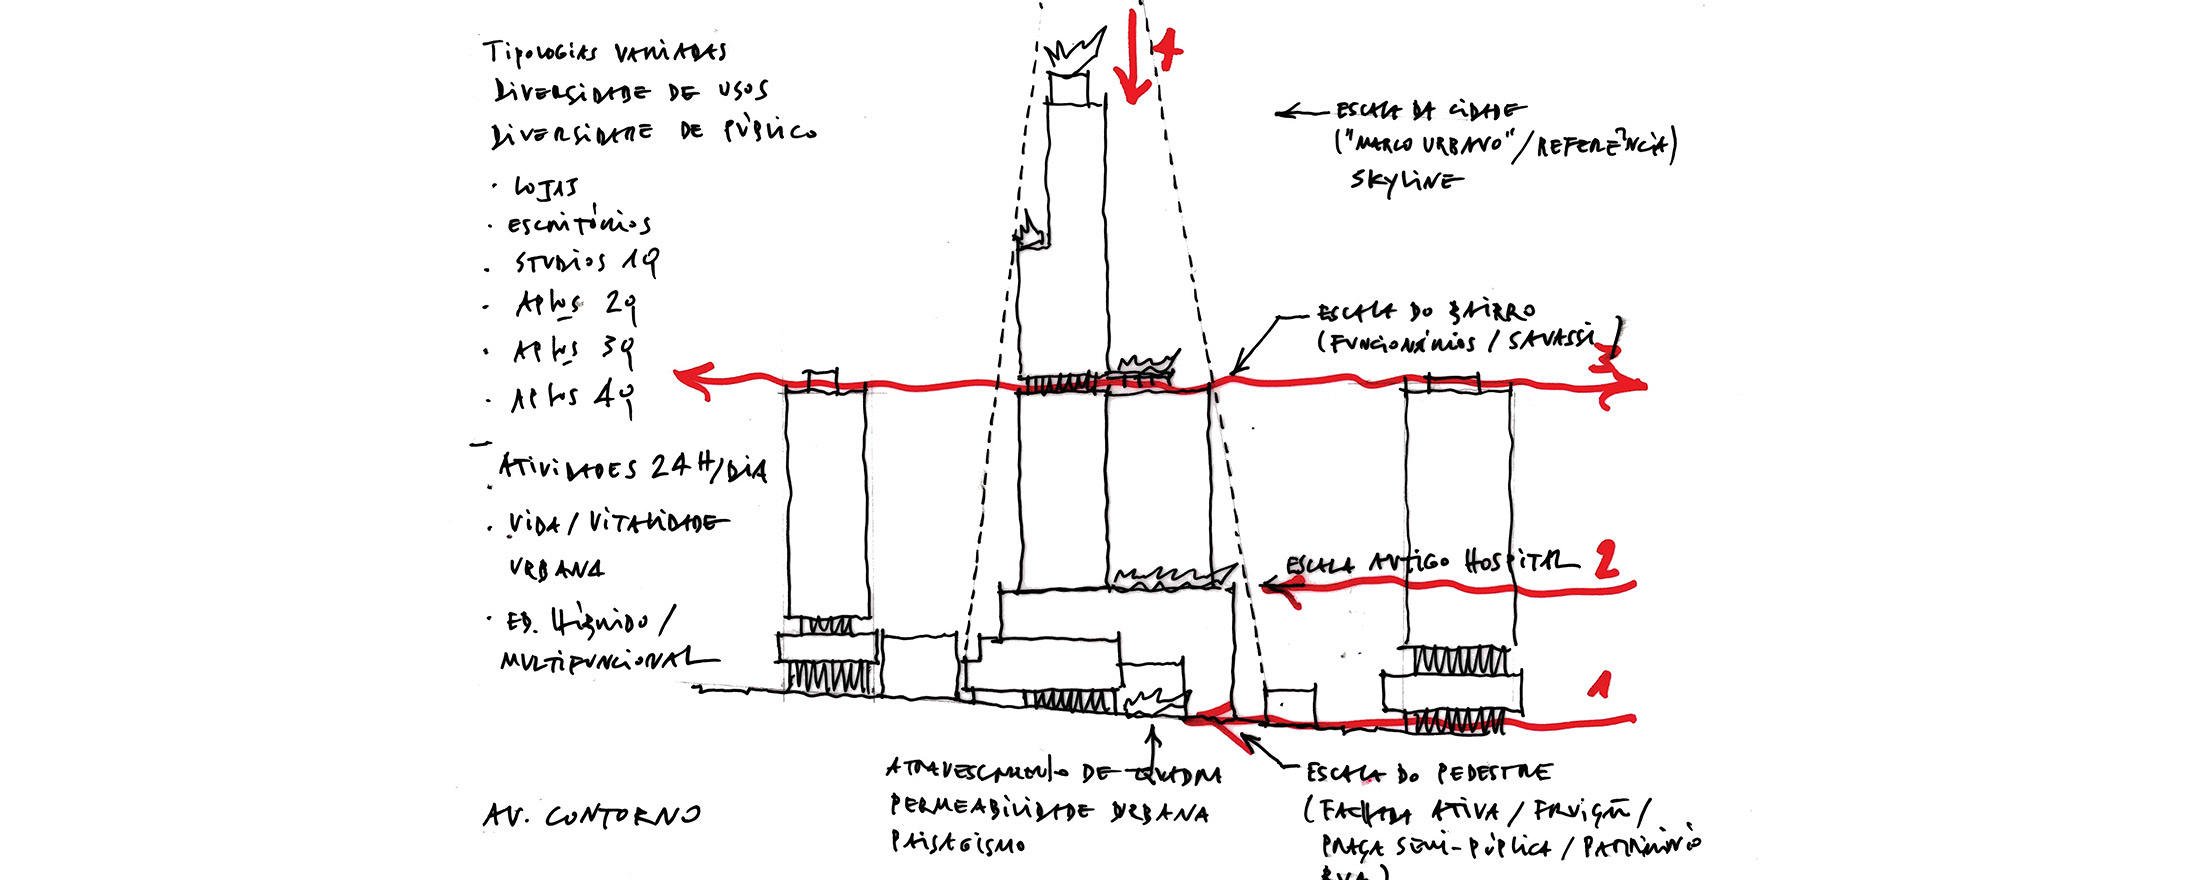 TIPOLOGIAS VARIADAS
DIVERSIDADE DE USOS
DIVERSIDADE DE PÚBLICO
· LOJAS
· ESCRITÓRIOS
· STUDIOS 1Q
· APTOS 2Q
· APTOS 3Q
· APTOS 4Q
ATIVIDADES 24H/DIA
· VIDA / VITALIDADE
URBANA
· ED. HÍBRIDO /
MULTIFUNCIONAL
AV. CONTORNO
4
ESCALA DA CIDADE
("MARCO URBANO" / REFERÊNCIA)
SKYLINE
ESCALA DO BAIRRO
(FUNCIONÁRIOS / SAVASSI)
3
ESCALA ANTIGO HOSPITAL 2
1
ATRAVESSAMENTO DE QUADRA
PERMEABILIDADE URBANA
PAISAGISMO
ESCALA DO PEDESTRE
(FACHADA ATIVA / FRUIÇÃO /
PRAÇA SEMI-PÚBLICA / PATRIMÔNIO
RUA)